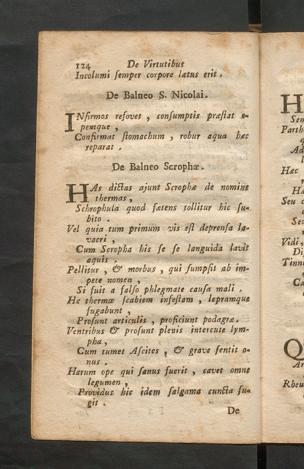 124 De Virtutibus
Incolumi semper corpore lætus erit.
De Balneo S. Nicolai.
INfirmos refovet, consumptis præstat o-
pemque,
Confirmat stomachum, robur aqua hæc
reparat.
De Balneo Scrophæ.
HAs dictas ajunt Scrophæ de nomine
thermas,
Schrophula quod fætens tollitur hic su-
bito.
Vel quia tum primum vis est deprensa la-
vacri,
Cum Scropha his se se languida lavit
aquis.
Pellitur, & morbus, qui sumpsit ab im-
pete nomen,
Si fuit a falso phlegmate causa mali.
Hæ thermæ scabiem infestam, lepramque
fugabunt,
Prosunt articulis, proficiunt podagræ.
Ventribus & prosunt plenis intercute lym-
pha,
Cum tumet Ascites, & grave sentit o-
nus.
Harum ope qui sanus fuerit, cavet omne
legumen,
Providus hic idem salgama cuncta fu-
git.
De
H
Sen
Parth
Ad
Hæc
Ha
Seu c
Vidi,
Di
Tinn
Ca
Q
Ar
Rheu